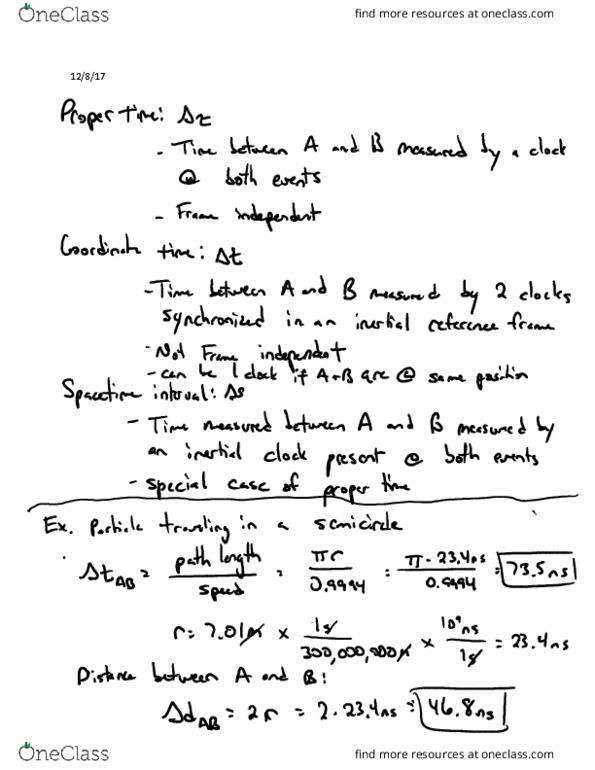 OneClass
find more resources at oneclass.com
12/8/17
Proper time: Δτ
- Time between A and B measured by a clock
@ both events
- Frame independent
Coordinate time: Δt
- Time between A and B measured by 2 clocks
synchronized in an inertial reference frame
- Not Frame independent
- can be 1 clock if A+B are @ same position
Spacetime interval: Δs
- Time measured between A and B measured by
an inertial clock present @ both events
- special case of proper time
Ex. Particle traveling in a semicircle
Δt_AB = path length / speed = πr / 0.9994 = π · 23.4ns / 0.9994 = 73.5ns
r = 7.01m × 1s / 300,000,000m × 10⁹ns / 1s = 23.4ns
Distance between A and B:
Δd_AB = 2r = 2 · 23.4ns = 46.8ns
OneClass
find more resources at oneclass.com